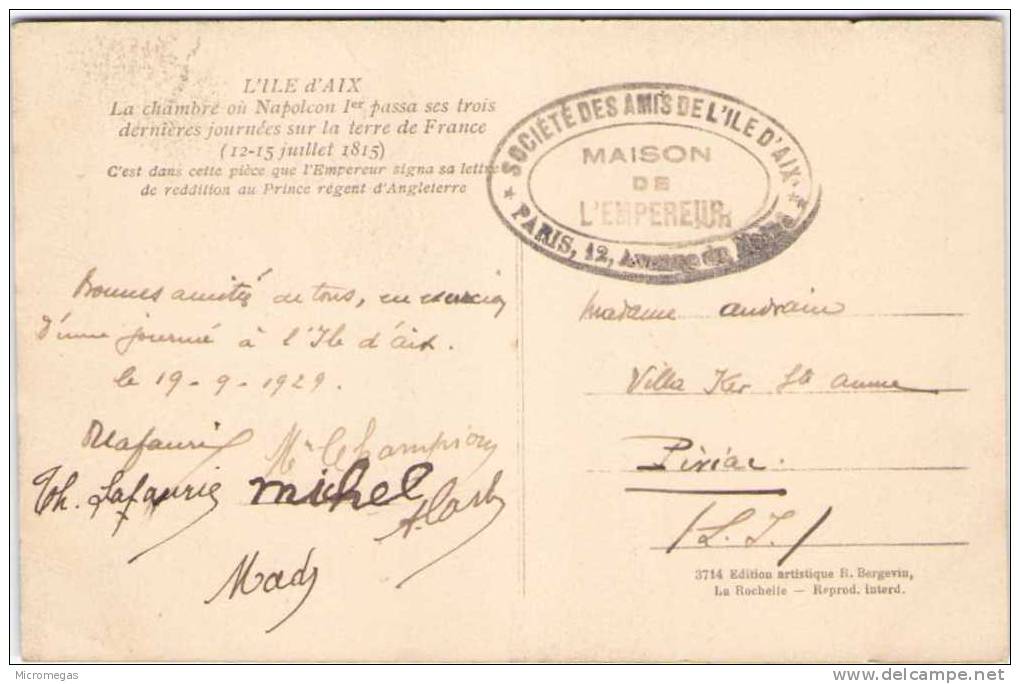 L'ILE d'AIX
La chambre où Napoléon Ier passa ses trois
dernières journées sur la terre de France
(12-15 juillet 1815)
C'est dans cette pièce que l'Empereur signa sa lettre
de reddition au Prince régent d'Angleterre
SOCIÉTÉ DES AMIS DE L'ILE D'AIX
MAISON
DE
L'EMPEREUR
PARIS, 12, Avenue du
Bonnes amitiés de tous, en
d'une journée à l'Ile d'aix.
le 19-9-1929.
Lafaurie
Th. Lafaurie
michel
Mady
Madame
Villa Ker Ste anne
Piriac.
/L. I./
3714 Edition artistique R. Bergevin,
La Rochelle — Reprod. interd.
Micromegas
www.delcampe.net